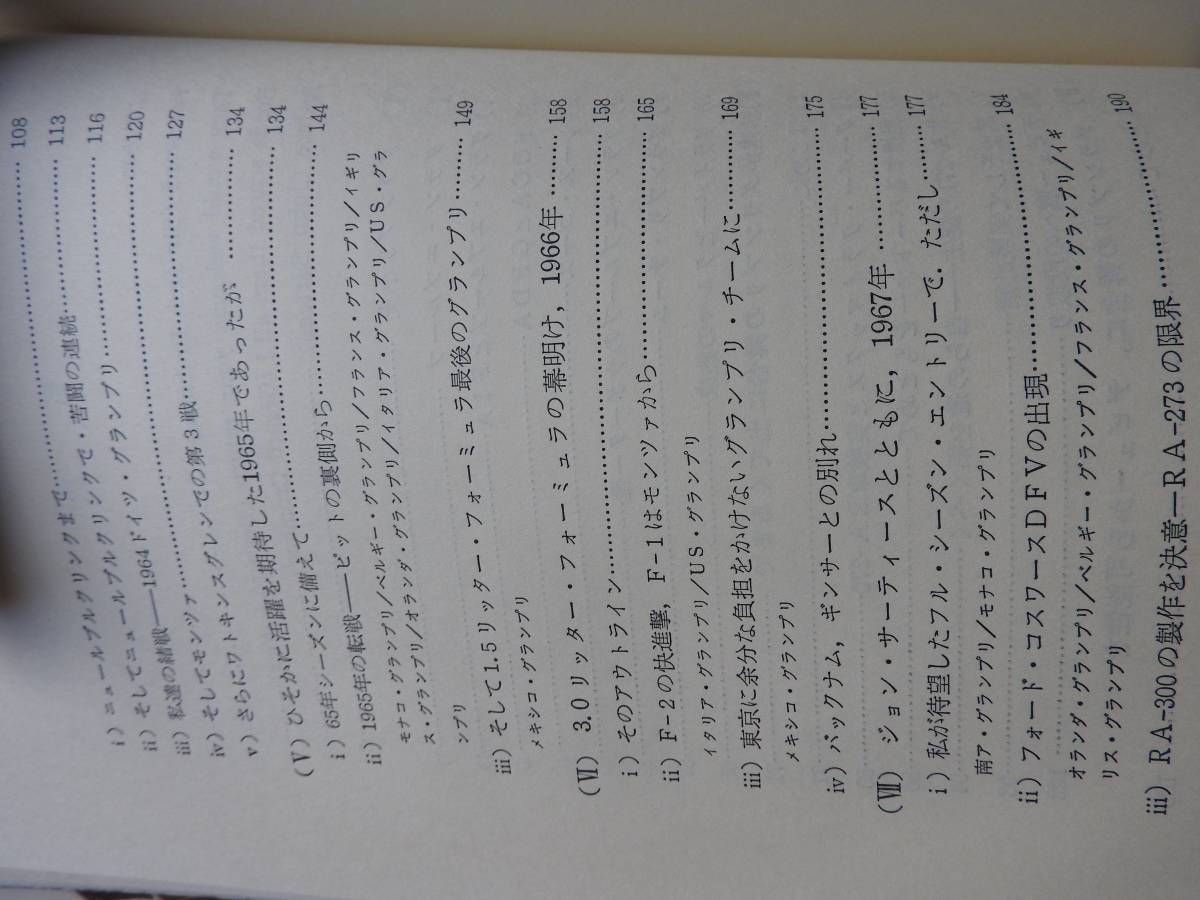 i) ニュールブルクリンクまで……………………108
ii) そしてニュールブルクリンクで・苦闘の連続……………113
iii) 私達の緒戦——1964ドイツ・グランプリ……………116
iv) そしてモンツァ……………………120
v) さらにワトキンスグレンでの第3戦……………127
(Ⅴ) ひそかに活躍を期待した1965年であったが …………134
i) 65年シーズンに備えて……………………134
ii) 1965年の転戦——ピットの裏側から……………144
モナコ・グランプリ/ベルギー・グランプリ/フランス・グランプリ/イギリ
ス・グランプリ/オランダ・グランプリ/イタリア・グランプリ/US・グラ
ンプリ
iii) そして1.5リッター・フォーミュラ最後のグランプリ………149
メキシコ・グランプリ
(Ⅵ) 3.0リッター・フォーミュラの幕明け，1966年 ………158
i) そのアウトライン……………………158
ii) F-2の快進撃，F-1はモンツァから……………165
イタリア・グランプリ/US・グランプリ
iii) 東京に余分な負担をかけないグランプリ・チームに………169
メキシコ・グランプリ
iv) バックナム，ギンサーとの別れ……………175
(Ⅶ) ジョン・サーティースとともに，1967年 …………177
i) 私が待望したフル・シーズン・エントリーで．ただし………177
南ア・グランプリ/モナコ・グランプリ
ii) フォード・コスワースDFVの出現……………184
オランダ・グランプリ/ベルギー・グランプリ/フランス・グランプリ/イギ
リス・グランプリ
iii) RA-300の製作を決意―RA-273の限界……………190